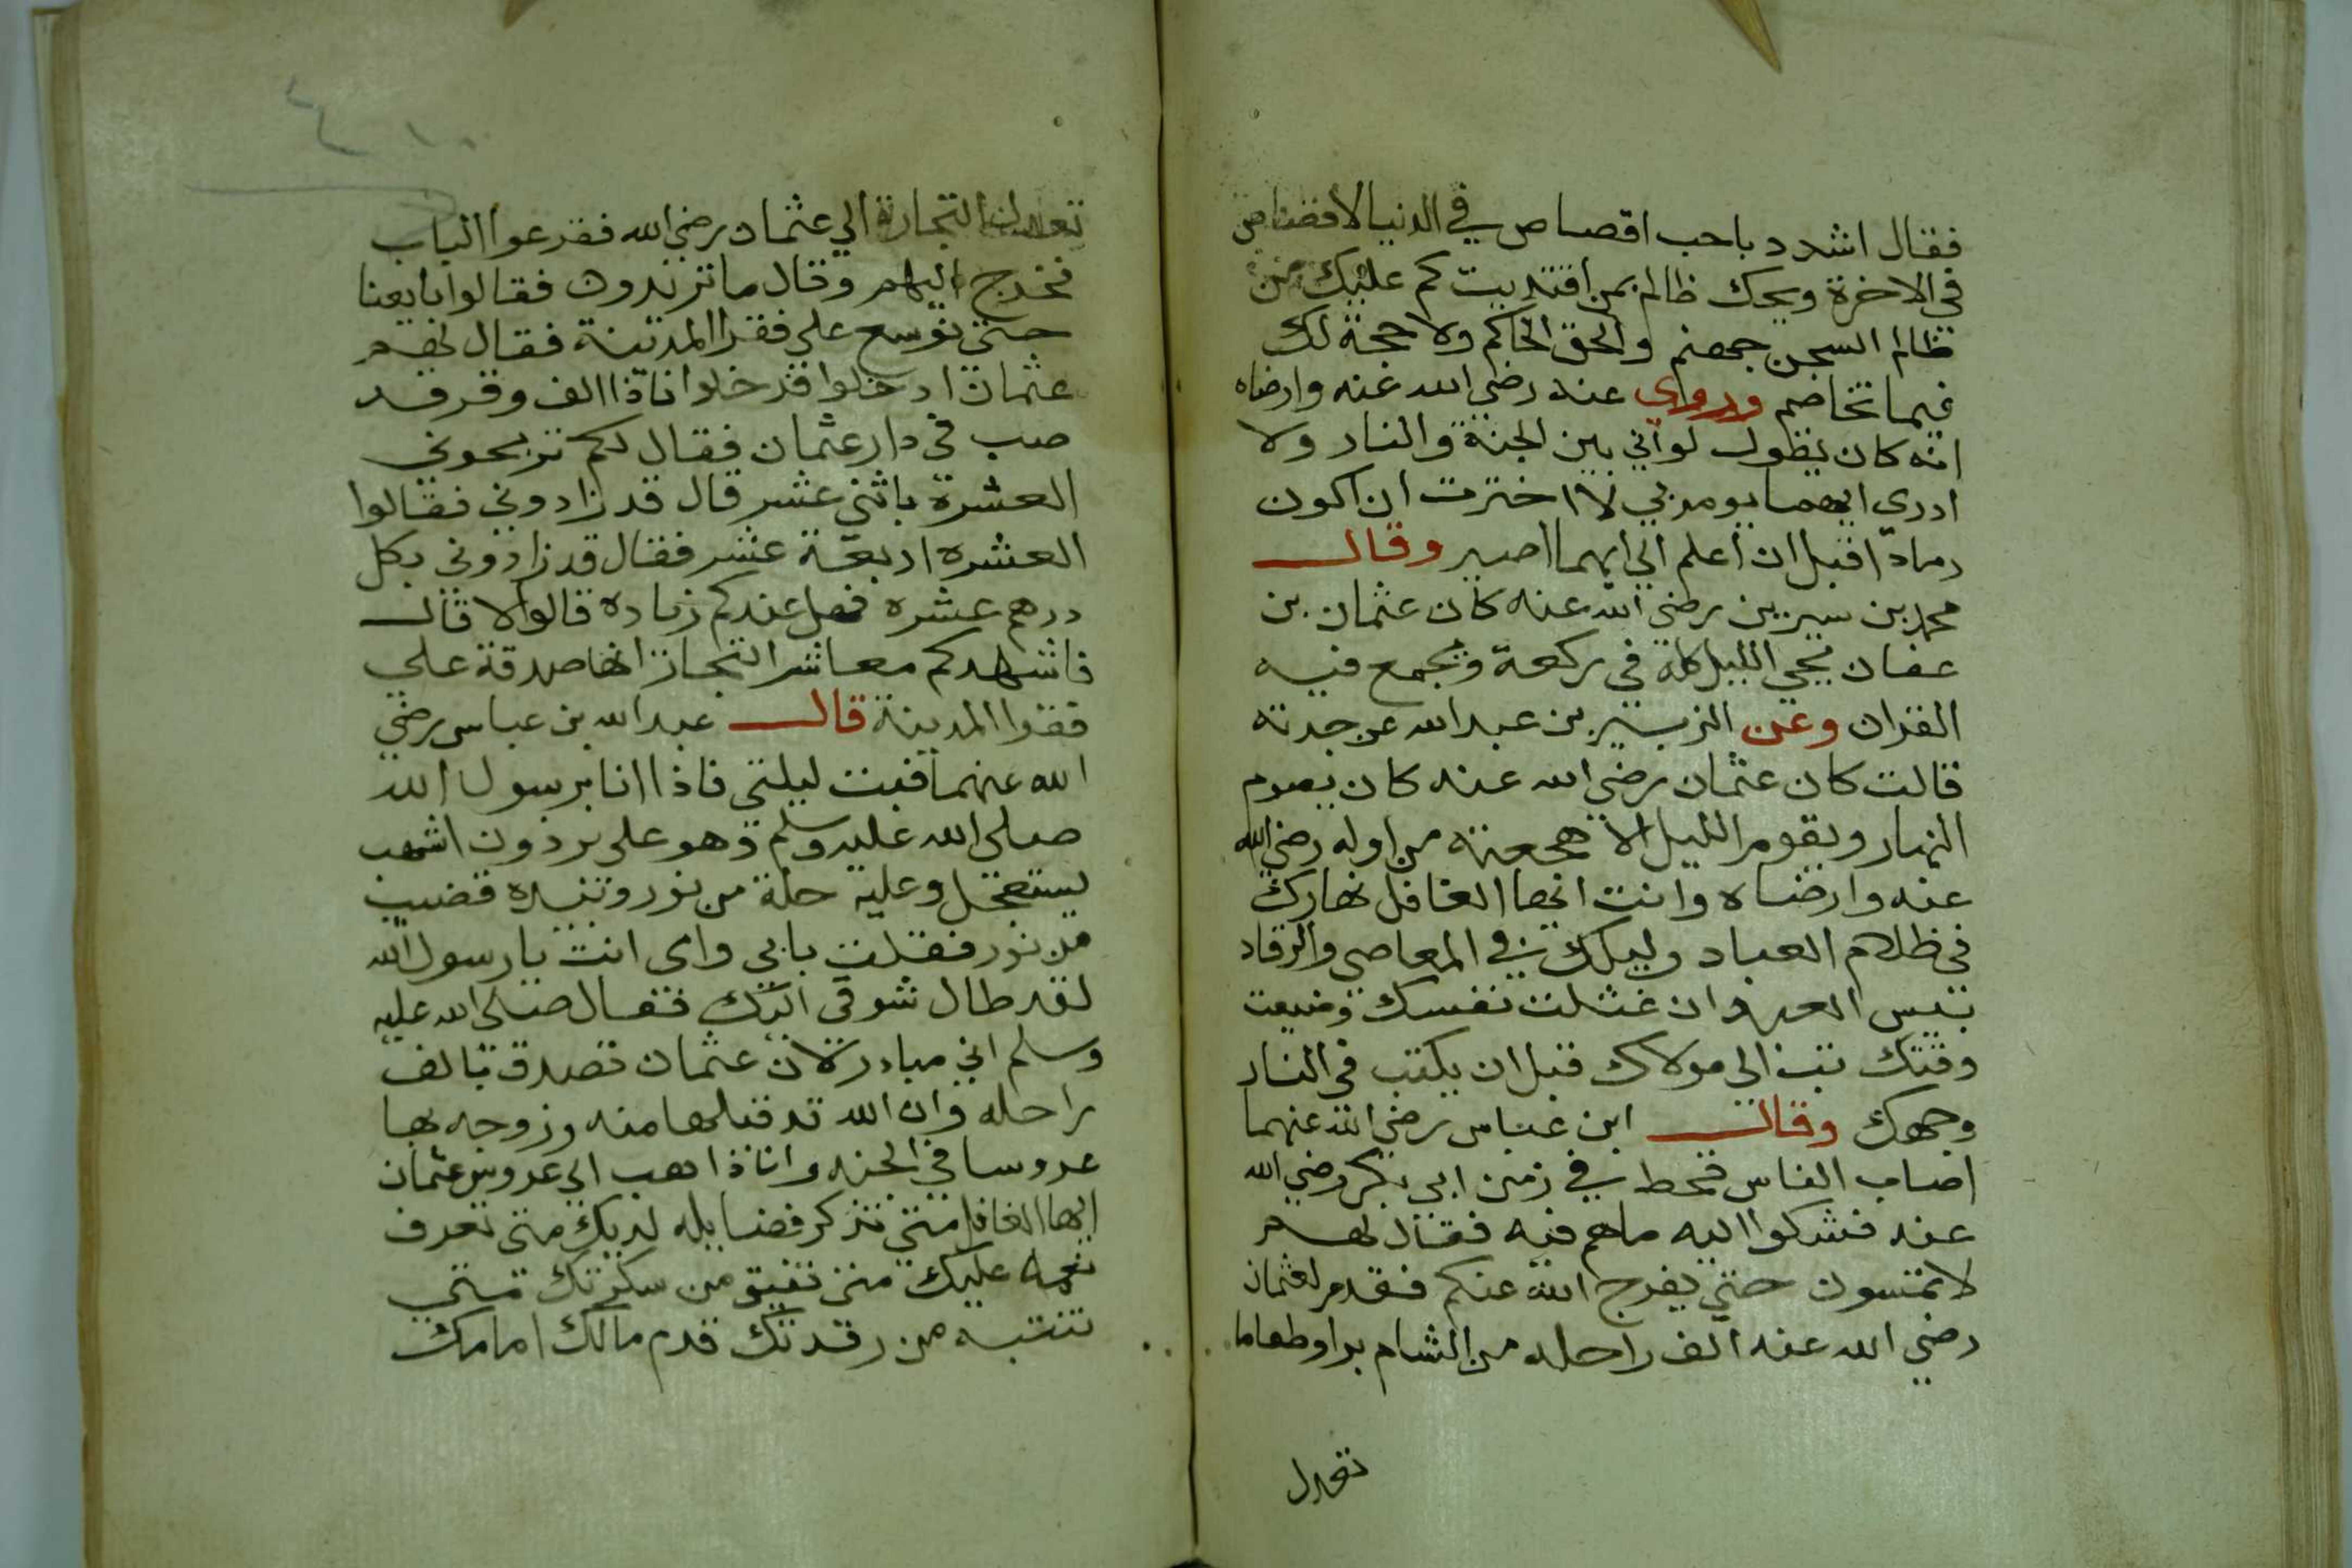 فقال اشدد باحب اقصاص في الدنيا لا قصاص
في الاخرة ويحك ظالم بمن اقتديت كم عليك من
ظالم السجن جهنم والحق الحاكم ولا حجة لك
فيما تخاصم وروي عنه رضي الله عنه وارضاه
انه كان يقول لو اني بين الجنة والنار ولا
ادري ايهما يومر بي لاخترت ان اكون
رمادا قبل ان اعلم الي ايهما اصير وقال
محمد بن سيرين رضي الله عنه كان عثمان بن
عفان يحي الليل كله في ركعة ويجمع فيه
القران وعن الزبير بن عبد الله عن جدته
قالت كان عثمان رضي الله عنه كان يصوم
النهار ويقوم الليل الا هجعته من اوله رضي الله
عنه وارضاه وانت ايها الغافل نهارك
في ظلام العباد وليلك في المعاصي والرقاد
بيس العبد وان غشلت نفسك وضيعت
وقتك تب الي مولاك قبل ان يكتب في النار
وجهك وقال ابن عباس رضي الله عنهما
اصاب الناس قحط في زمن ابي بكر رضي الله
عنه فشكوا اليه ما هم فيه فقال لهم
لا تمسون حتي يفرج الله عنكم فقدم لعثمان
رضي الله عنه الف راحله من الشام برا وطعاما
تعدل
تعدلت التجارة الي عثمان رضي الله فقرعوا الباب
فخرج اليهم وقال ما تريدون فقالوا بايعنا
حتي نوسع علي فقرا المدينة فقال لهم
عثمان ادخلوا فدخلوا فاذا الف وقر قد
صب في دار عثمان فقال لكم تربحوني
العشرة باثني عشر قال قد زادوني فقالوا
العشره اربعة عشر فقال قد زادوني بكل
درهم عشره فهل عندكم زياده قالوا لا قال
فاشهدكم معاشر التجار انها صدقة علي
فقرا المدينة قال عبد الله بن عباس رضي
الله عنهما فبت ليلتي فاذا انا برسول الله
صلي الله عليه وسلم وهو علي برذون اشهب
يستعجل وعليه حلة من نور وبيده قضيب
من نور فقلت بابي وامي انت يا رسول الله
لقد طال شوقي اليك فقال صلي الله عليه
وسلم اني مبادر لان عثمان تصدق بالف
راحله وان الله قد قبلها منه وزوجه بها
عروسا في الجنه وانا ذاهب الي عروس عثمان
ايها الغافل متي تذكر فضايله لديك متي تعرف
نعمه عليك متي تفيق من سكرتك متي
تنتبه من رقدتك قدم مالك امامك